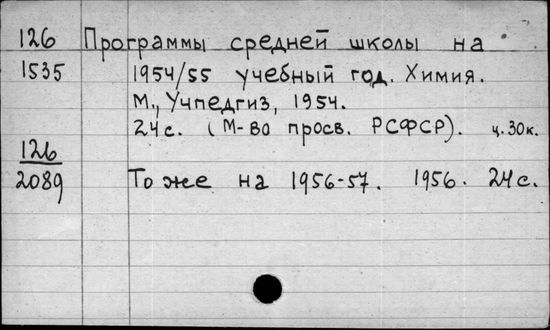 126 Программы средней школы на
1535 1954/55 учебный год. Химия.
М., Учпедгиз, 1954.
24 с. (М-во просв. РСФСР). ц. 30к.
126
2089 То же на 1956-57. 1956. 24 с.